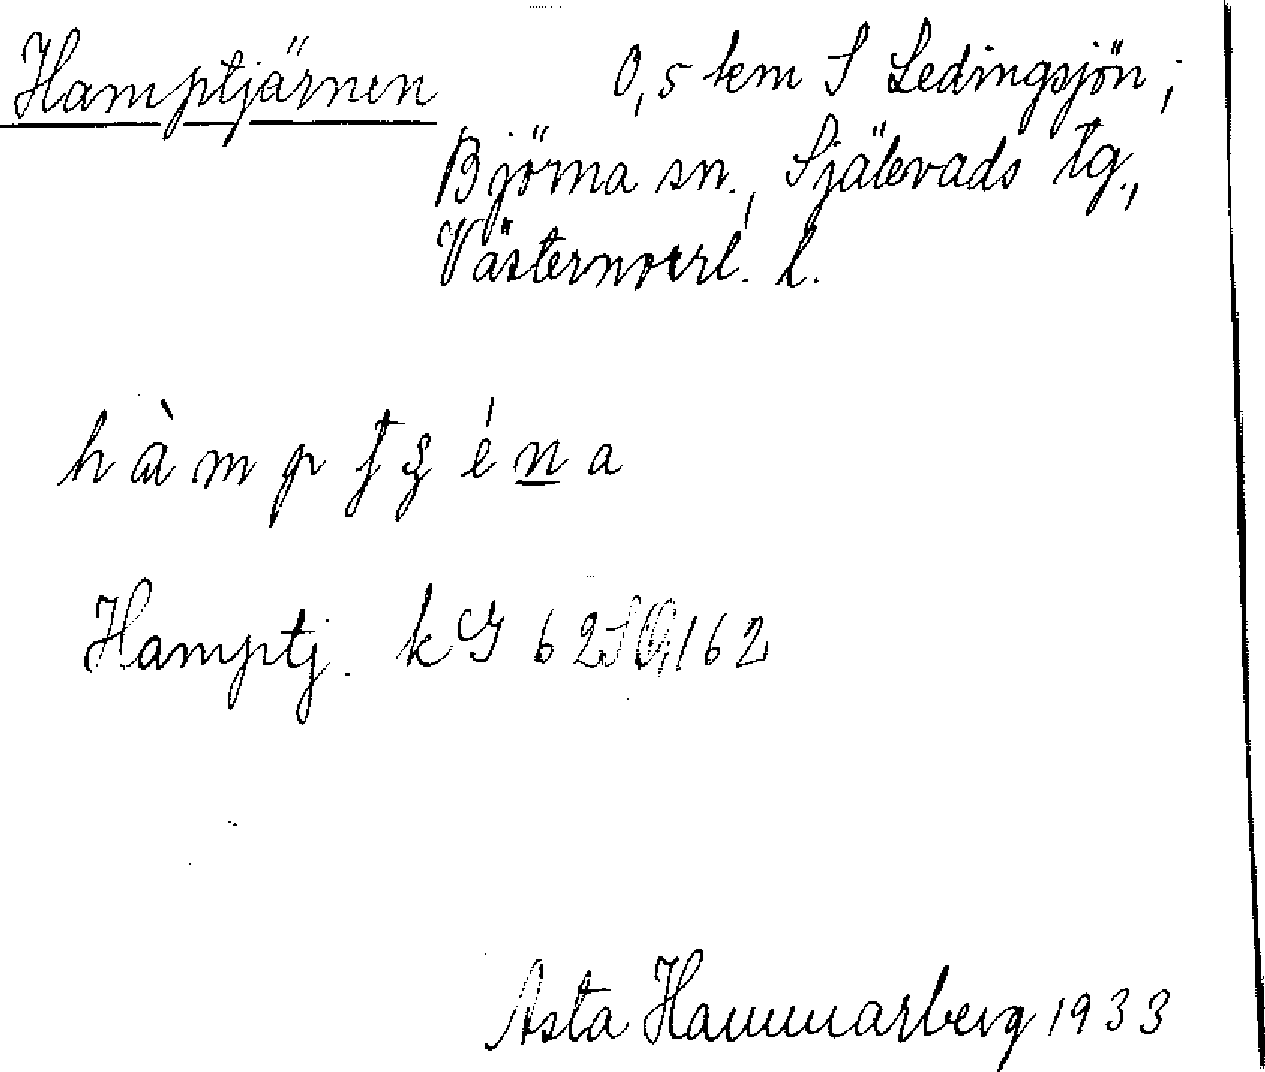 Hamptjärnen 0,5 km S Ledingsjön;
Björna sn., Själevads tg.,
Västernorrl. l.
Hamptj. kG 62 SO, 162
Asta Hammarberg 1933